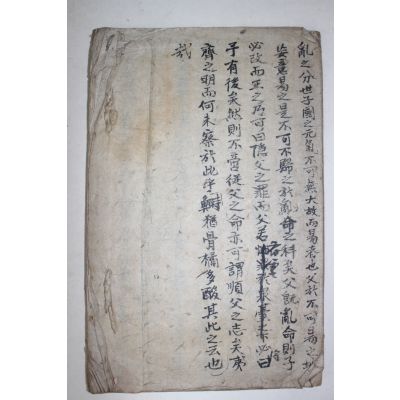 亂之分世子國之元氣不可無大故而易者也父於不可易之地
妄意易之是不可不歸之於亂命之科矣父旣亂命則子
必改而正之乃可曰隱父之罪而父若 必曰
予有後矣然則不啻從父之命亦可謂順父之志矣夷
齊之明而何未察於此乎鰣猶骨橘多酸其此之云也
哉